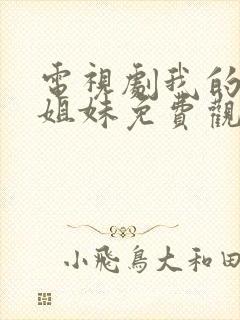 電視劇我的
姐妹免費觀
小飛鳥大和田